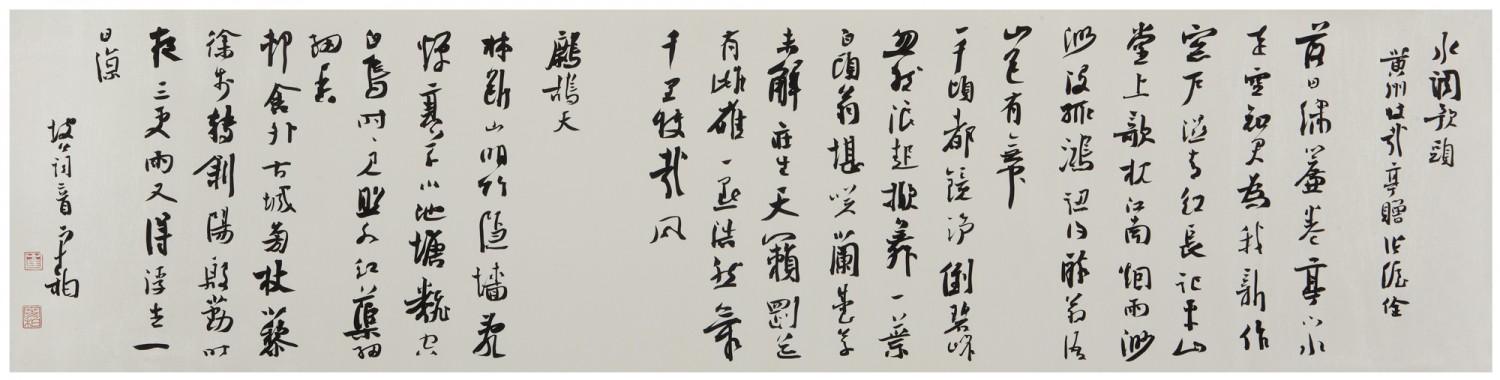 水調歌頭
黄州快哉亭贈张偓佺
落日绣簾卷亭下水
连空知君为我新作
窓户湿青红长记平山
堂上欹枕江南烟雨渺
渺没孤鴻认得醉翁语
山色有无中
一千頃都镜净倒碧峰
忽然浪起掀舞一葉
白頭翁堪笑蘭台公子
未解莊生天籟剛道
有雌雄一点浩然氣
千里快哉风
鷓鴣天
林断山明竹隐墙乱
蝉衰草小池塘翻空
白鸟时时见照水红蕖细
细香
村舍外古城旁杖藜
徐步轉斜陽殷勤昨
夜三更雨又得浮生一
日凉
坡公词二首